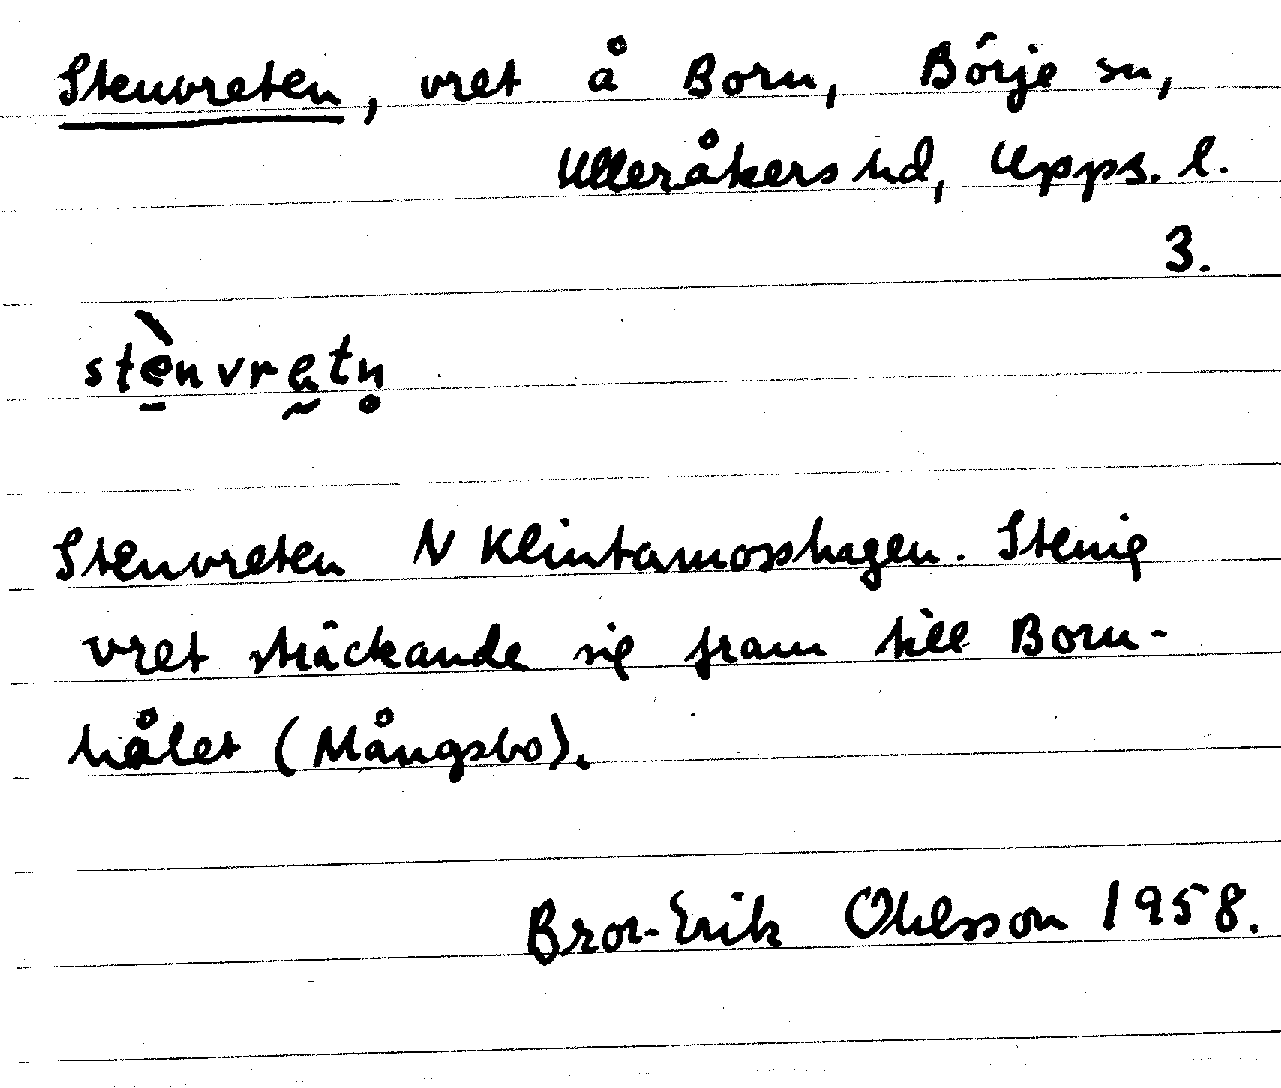 Stenvreten, vret å Born, Börje sn,
Ulleråkers hd, Upps. l.
3.
stè̠nvrḛtn̥
Stenvreten N Klintamosshagen. Stenig
vret sträckande sig fram till Born-
hålet (Mångsbo).
Bror-Erik Ohlsson 1958.